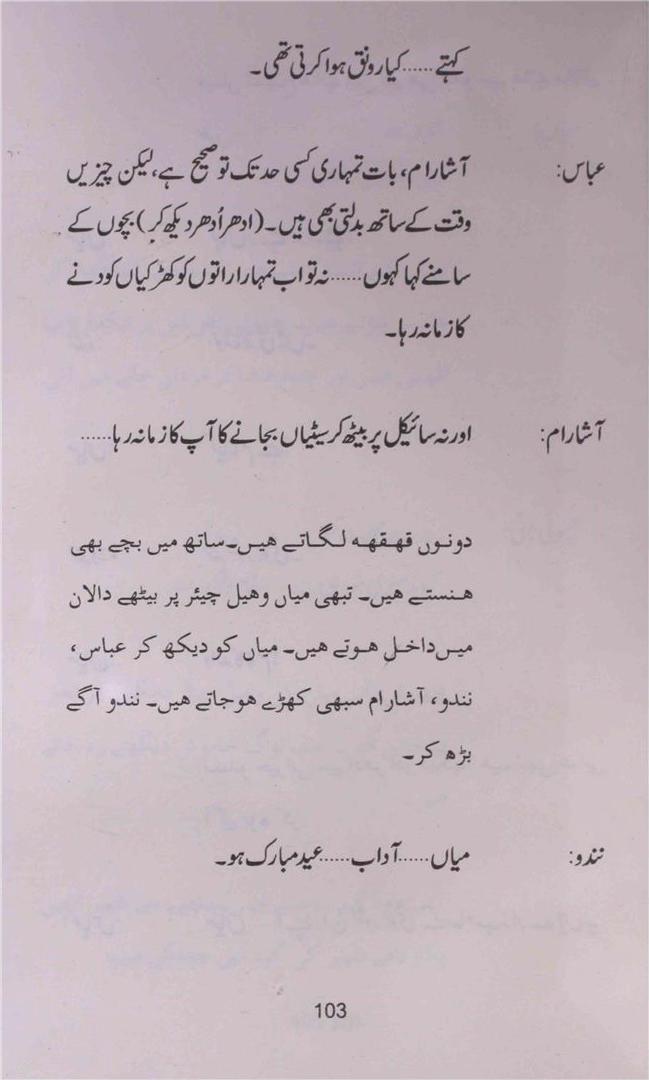 کہتے ...... کیا رونق ہوا کرتی تھی۔
عباس: آشارام، بات تمہاری کسی حد تک تو صحیح ہے، لیکن چیزیں
وقت کے ساتھ بدلتی بھی ہیں۔ (ادھر اُدھر دیکھ کر) بچوں کے
سامنے کہا کہوں ...... نہ تو اب تمہارا راتوں کو کھڑکیاں کودنے
کا زمانہ رہا۔
آشارام: اور نہ سائیکل پر بیٹھ کر سیٹیاں بجانے کا آپ کا زمانہ رہا ......
دونوں قہقہہ لگاتے ھیں۔ساتھ میں بچے بھی
ھنستے ھیں۔ تبھی میاں وھیل چیئر پر بیٹھے دالان
میں داخل ھوتے ھیں۔ میاں کو دیکھ کر عباس،
نندو، آشارام سبھی کھڑے ھوجاتے ھیں۔ نندو آگے
بڑھ کر۔
نندو: میاں ...... آداب ...... عید مبارک ہو۔
103